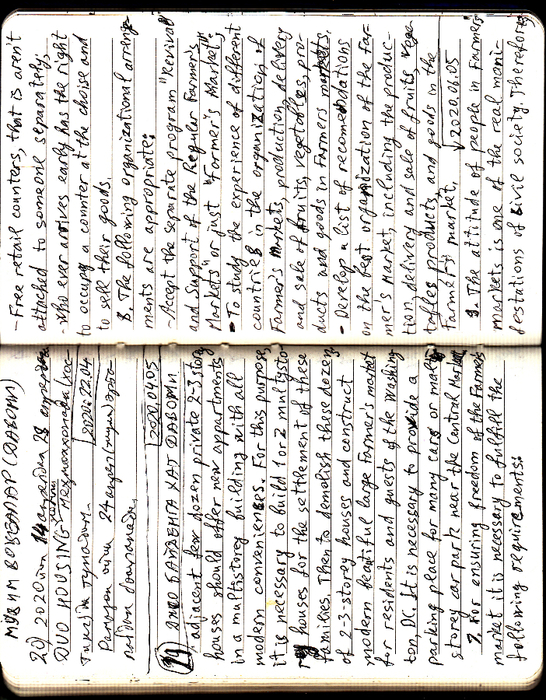 МУҲИМ ВОҚЕАЛАР (ДАВОМИ)
20) 2020 йил 14 апрелдан 28 апрелгача
DUO HOUSING меҳмонхонада
2020.22.04
Рамазон ойи 24 апрел
2020.04.05
24 ДУЮ БАЙДЕНГА ХАТ ДАВОМИ
adjacent few dozen private 2-3 story
houses should offer new appartments
in a multistorey building with all
modern conveniences. For this purpose,
it is necessary to build 1 or 2 multysto-
rey houses for the settlement of these
families. Then to demolish these dozens
of 2-3-storey houses and construct
modern beautiful large Farmer's market
for residents and guests of the Washing
ton, DC. It is necessary to provide a
parking place for many cars or multy
storey car park near the Central Market
7. For ensuring freedom of the Farmers
market it is necessary to fulfill the
following requirements:
- Free retail counters, that is aren't
attached to someone separately.
- Who ever arrives early has the right
to occupy a counter at the choise and
to sell their goods.
8. The following organizational arrenge-
ments are appropriate:
- Accept the separate program "Revival
and Support of the Regular Farmer's
Markets" or just "Farmer's Market",
- To study the experience of different
countries in the organization of
Farmer's Markets, production, delivery
and sale of fruits, vegetables, pro-
ducts and goods in Farmers markets,
- Develop a list of recomendations
on the best organization of the far-
mer's market, including the produc-
tion, delivery and sale of fruits vege-
tables products, and goods in the
Farmer's market, 2020.06.05
9. The attitude of people in Farmer's
markets is one of the real mani-
festations of civil society. Therefore